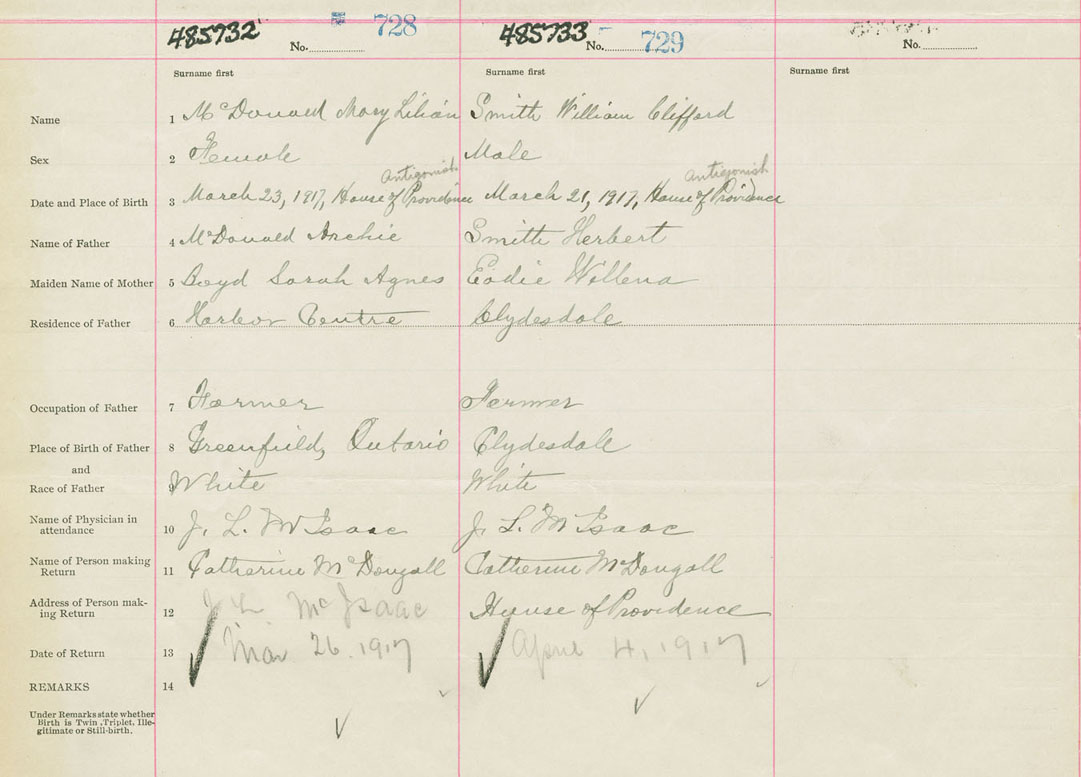 485732 No. 728 485733 No. 729 No.
Surname first Surname first Surname first
Name 1 McDonald Mary Lilian Smith William Clifford
Sex 2 Female Male
Antigonish Antigonish
Date and Place of Birth 3 March 23, 1917, House of Providence March 21, 1917, House of Providence
Name of Father 4 McDonald Archie Smith Herbert
Maiden Name of Mother 5 Boyd Sarah Agnes Eadie Willena
Residence of Father 6 Harbor Centre Clydesdale
Occupation of Father 7 Farmer Farmer
Place of Birth of Father 8 Greenfield, Ontario Clydesdale
and
Race of Father 9 White White
Name of Physician in
attendance 10 J. L. McIsaac J. L. McIsaac
Name of Person making
Return 11 Catherine McDougall Catherine McDougall
Address of Person mak-
ing Return 12 J L McIsaac House of Providence
Date of Return 13 Mar 26. 1917 April 4, 1917
REMARKS 14
Under Remarks state whether
Birth is Twin, Triplet, Ille-
gitimate or Still-birth.